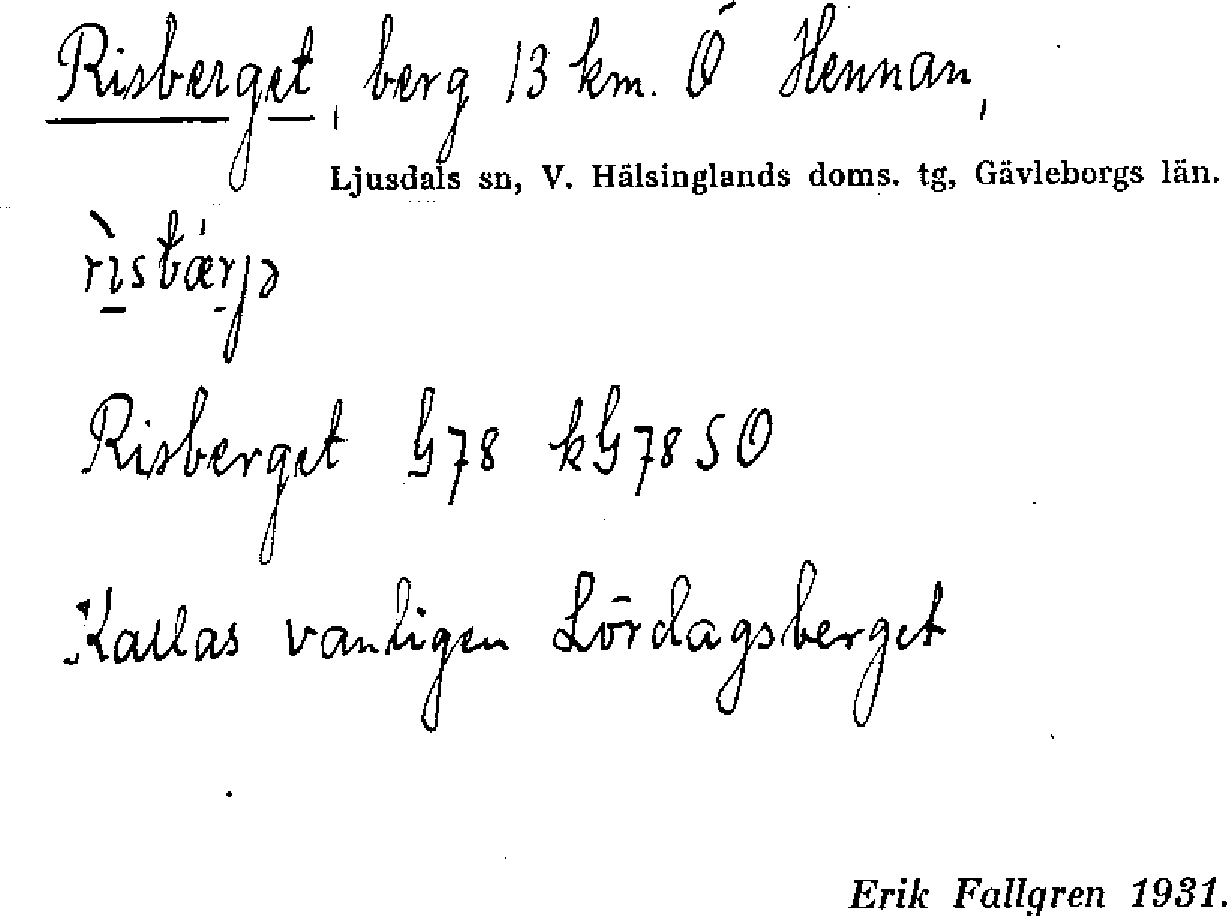 Risberget, berg 13 km. Ö Hennan,
Ljusdals sn, V. Hälsinglands doms. tg, Gävleborgs län.
Risberget G78 kG78SO
Kallas vanligen Lördagsberget
Erik Fallgren 1931.